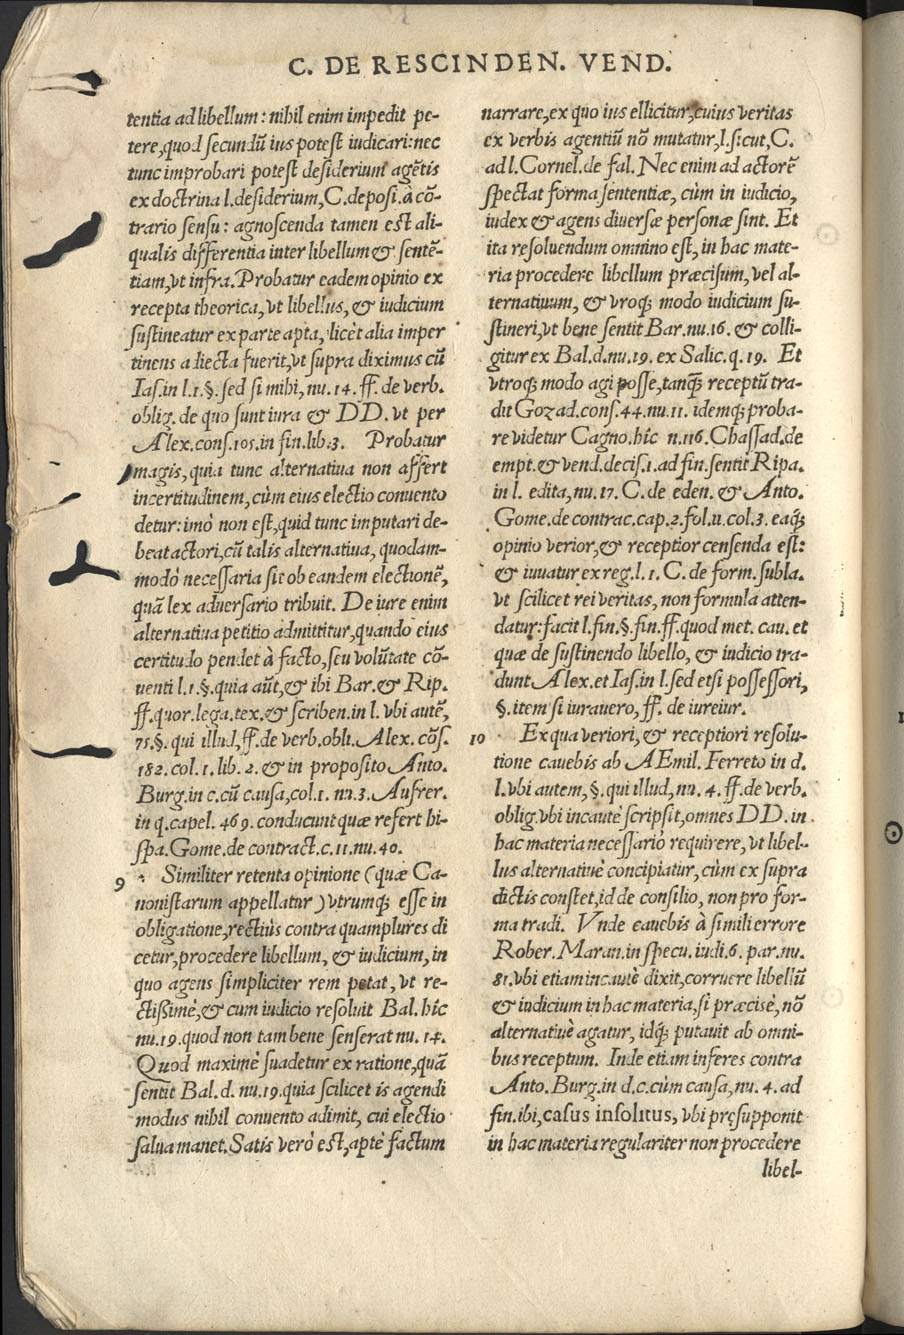 C. DE RESCINDEN. VEND.
tentia ad libellum: nihil enim impedit pe-
tere, quod secundū ius potest iudicari: nec
tunc improbari potest desiderium agētis
ex doctrina l. desiderium, C. de posi. à cō-
trario sensu: agnoscenda tamen est ali-
qualis differentia inter libellum & sentē-
tiam, vt infra. Probatur eadem opinio ex
recepta theorica, vt libellus, & iudicium
sustineatur ex parte apta, licèt alia imper
tinens adiecta fuerit, vt supra diximus cū
Ias. in l. 1. §. sed si mihi, nu. 14. ff. de verb.
oblig. de quo sunt iura & DD. vt per
Alex. cons. 105. in fin. lib. 3. Probatur
magis, quia tunc alternatiua non affert
incertitudinem, cùm eius electio conuento
detur: imò non est, quid tunc imputari de-
beat actori, cū talis alternatiua, quodam-
modò necessaria sit ob eandem electionē,
quā lex aduersario tribuit. De iure enim
alternatiua petitio admittitur, quando eius
certitudo pendet à facto, seu volūtate cō-
uenti l. 1. §. quia aūt, & ibi Bar. & Rip.
ff. quor. lega. tex. & scriben. in l. vbi autē,
75. §. qui illud, ff. de verb. obli. Alex. cōs.
182. col. 1. lib. 2. & in proposito Anto.
Burg. in c. cū causa, col. 1. nu. 3. Aufrer.
in q. capel. 469. conducunt quæ refert hi-
spa. Gome. de contract. c. 11. nu. 40.
9 Similiter retenta opinione (quæ Ca-
nonistarum appellatur) vtrumq; esse in
obligatione, rectiùs contra quamplures di
cetur, procedere libellum, & iudicium, in
quo agens simpliciter rem petat, vt re-
ctißimè, & cum iudicio resoluit Bal. hîc
nu. 19. quod non tam bene senserat nu. 14.
Quod maximè suadetur ex ratione, quā
sentit Bal. d. nu. 19. quia scilicet is agendi
modus nihil conuento adimit, cui electio
salua manet. Satis verò est, aptè factum
narrare, ex quo ius ellicitur, cuius veritas
ex verbis agentiū nō mutatur, l. sicut, C.
ad l. Cornel. de fal. Nec enim ad actorē
spectat forma sententiæ, cùm in iudicio,
iudex & agens diuersæ personæ sint. Et
ita resoluendum omnino est, in hac mate-
ria procedere libellum præcisum, vel al-
ternatiuum, & vroq; modo iudicium su-
stineri, vt bene sentit Bar. nu. 16. & colli-
gitur ex Bal. d. nu. 19. ex Salic. q. 19. Et
vtroq; modo agi posse, tanq̃ receptū tra-
dit Gozad. cons. 44. nu. 11. idemq; proba-
re videtur Cagno. hîc n. 116. Chassad. de
empt. & vend. decis. 1. ad fin. sentit Ripa.
in l. edita, nu. 17. C. de eden. & Anto.
Gome. de contrac. cap. 2. fol. 11. col. 3. eaq;
opinio verior, & receptior censenda est:
& iuuatur ex reg. l. 1. C. de form. subla.
vt scilicet rei veritas, non formula atten-
datur: facit l. fin. §. fin. ff. quod met. cau. et
quæ de sustinendo libello, & iudicio tra-
dunt Alex. et Ias. in l. sed etsi possessori,
§. item si iurauero, ff. de iureiur.
10 Ex qua veriori, & receptiori resolu-
tione cauebis ab AEmil. Ferreto in d.
l. vbi autem, §. qui illud, nu. 4. ff. de verb.
oblig. vbi incautè scripsit, omnes DD. in
hac materia necessariò requirere, vt libel-
lus alternatiuè concipiatur, cùm ex supra
dictis constet, id de consilio, non pro for-
ma tradi. Vnde cauebis à simili errore
Rober. Maran. in specu. iudi. 6. par. nu.
81. vbi etiam incautè dixit, corruere libellū
& iudicium in hac materia, si præcisè, nō
alternatiuè agatur, idq; putauit ab omni-
bus receptum. Inde etiam inferes contra
Anto. Burg. in d. c. cùm causa, nu. 4. ad
fin. ibi, casus insolitus, vbi pręsupponit
in hac materia regulariter non procedere
libel-